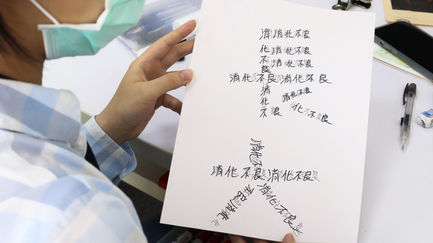 消消化不良
化消化不良
不消化不良
良
消化不良消化不良
消 消化不良
化 化不良
不良
消化不良
消化不良消化不良
消化不良
消化不良